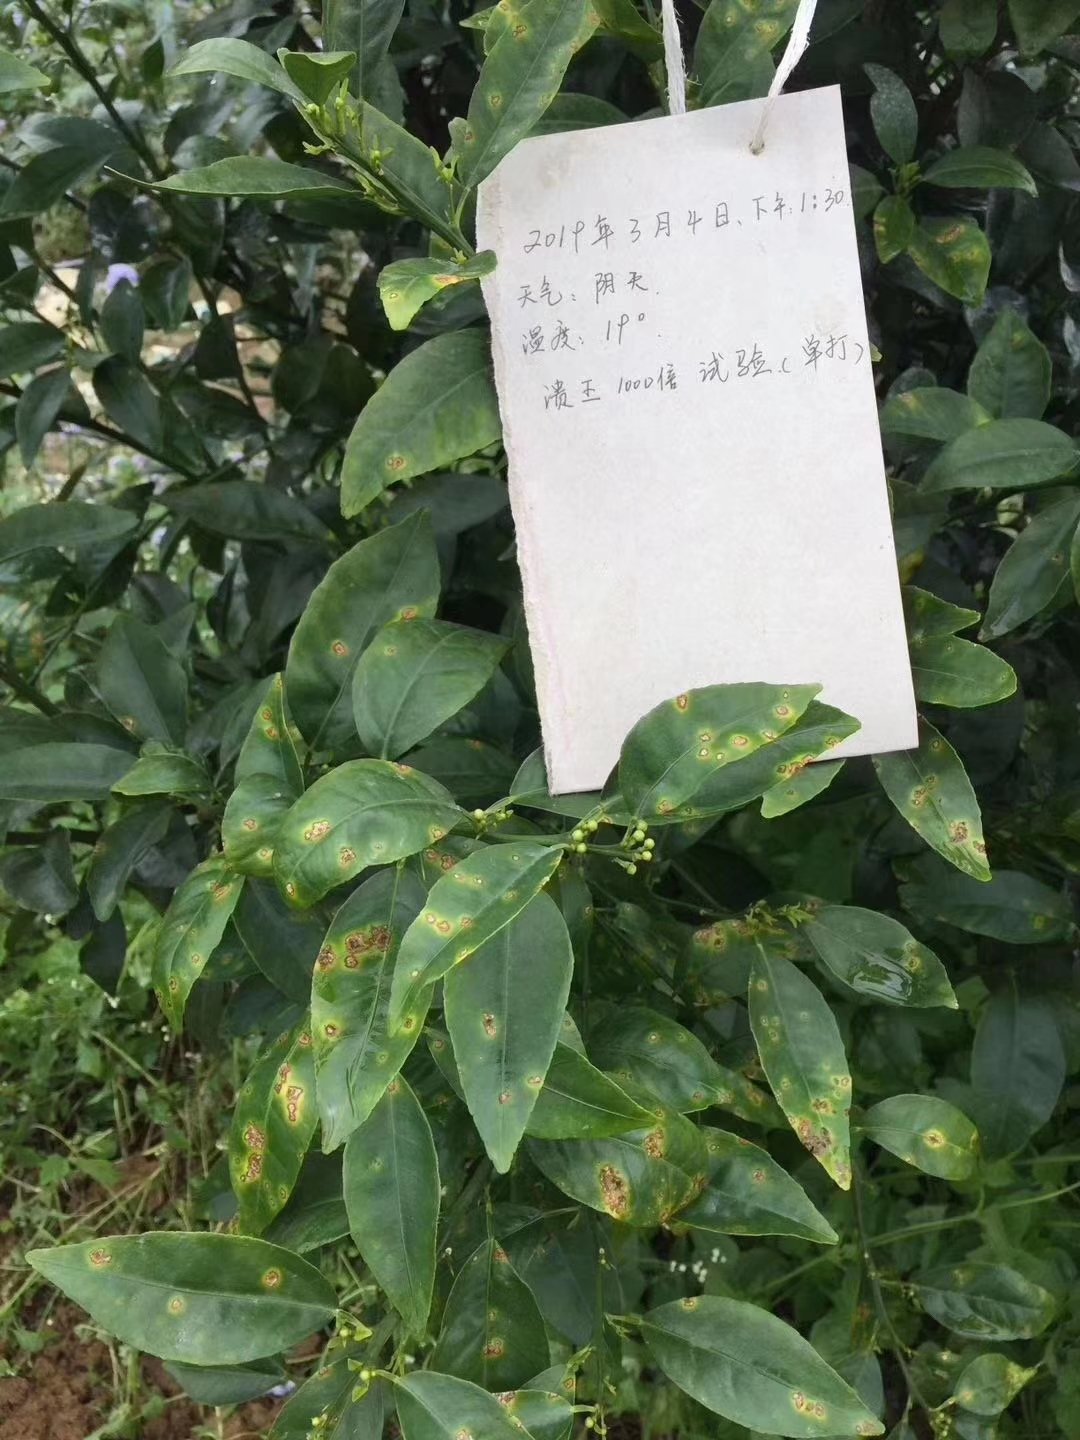 2019年3月4日、下午:1:30.
天气:阴天.
湿度:19°.
溃王 1000倍 试验.(单打)